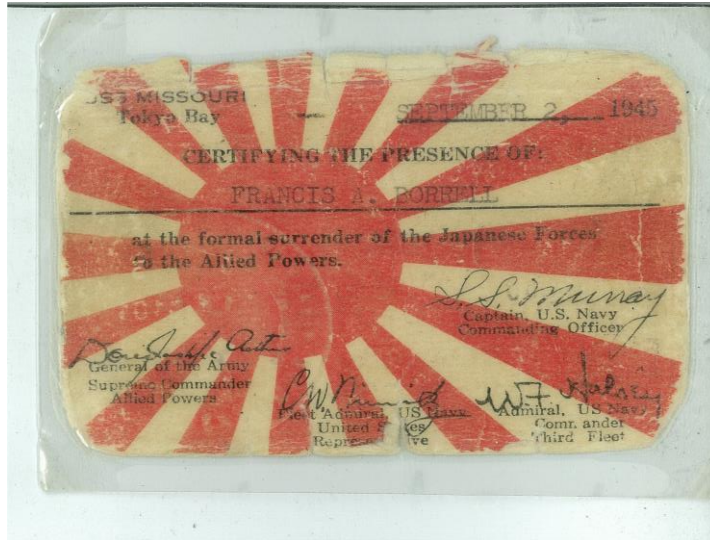 USS MISSOURI
Tokyo Bay — SEPTEMBER 2, 1945
CERTIFYING THE PRESENCE OF:
FRANCIS A. BORRELL
at the formal surrender of the Japanese Forces
to the Allied Powers.
S. S. Murray
Captain, U.S. Navy
Commanding Officer
Douglas MacArthur
General of the Army
Supreme Commander
Allied Powers
C W Nimitz
Fleet Admiral, US Navy
United States
Representative
W F Halsey
Admiral, US Navy
Commander
Third Fleet